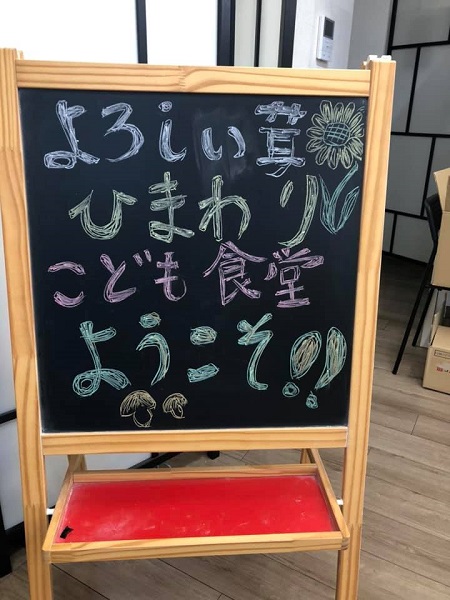 よろしい茸
ひまわり
こども食堂
ようこそ!!